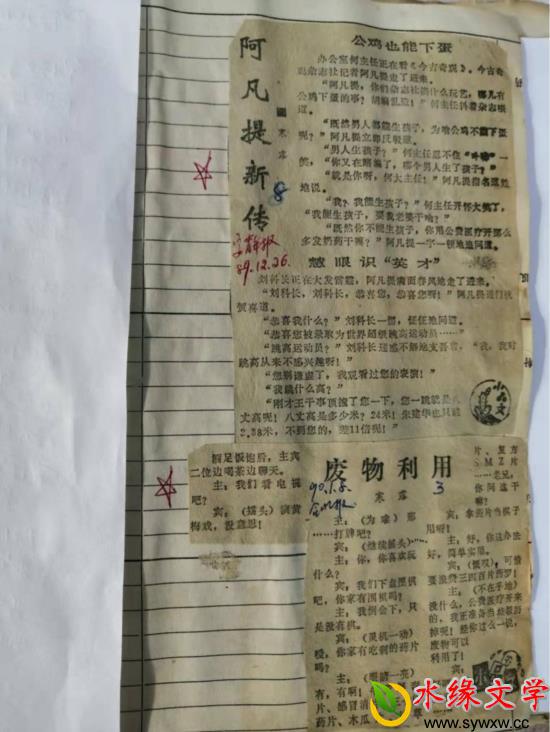 阿凡提新传
寒露
8
安静报
89.12.26.
公鸡也能下蛋
办公室何主任正在看《今古奇观》,今古奇
观杂志社记者阿凡提走了进来。
“阿凡提,你们杂志社搞什么玩艺,哪儿有
公鸡下蛋的事?胡编乱造!”何主任抖着杂志嚷
道。
“既然男人都能生孩子,为啥公鸡不能下蛋
呢?”阿凡提立即反驳道。
“男人生孩子?”何主任忍不住“
笑,“你又在瞎编了,哪个男人生了孩子?”
“就是你啊,何大主任!”阿凡提指名道姓
地说。
“我?我能生孩子?”何主任开怀大笑了,
“我能生孩子,要我老婆干啥?”
“既然你不能生孩子,你用公费医疗开那么
多发奶药干嘛?”阿凡提一字一顿地追问道。
慧眼识“英才”
刘科长正在大发雷霆,阿凡提满面春风地走了进来。
“刘科长,刘科长,恭喜您,恭喜您呀!”阿凡提进门就
贺喜道。
“恭喜我什么?”刘科长一愣,怔怔地问道。
“恭喜您被录取为世界超级跳高运动员……”
“跳高运动员?”刘科长迷惑不解地支吾着,“我,我对
跳高从来不感兴趣呀!”
“您别谦虚了,我观看过您的表演!”
“我跳什么高?”
“刚才王干事顶撞了您一下,您一跳就是八
丈高呢!八丈高是多少米?24米!朱建华也只跳
2.38米,不到您的,差11倍呢!”
小品文
废物利用
寒露
90.1.5.
3
酒足饭饱后,主宾
二位边喝茶边聊天。
主:我们看电视
吧?
宾:(摇头)演黄
梅戏,没意思!
主:(为难)那
……打牌吧?
宾:(继续摇头)……
主:你,你喜欢玩
什么?
宾:我们下盘围棋
吧,你家有围棋吗?
主:我倒会下,只
是没有棋。
宾:(灵机一动)
嗳,你家有吃剩的药片
吗?
主:(眼睛一亮)
有,有啊!
片、感冒消
药片、木瓜
片、复方
SMZ片
……老兄,
你问这干
嘛?
宾:拿药片当棋子
用呀!
主:好,你这办法
好,简单实用。
宾:(慨叹),可惜
要浪费三四百片药罗!
主:(不在乎地)
没什么,公费医疗开来
的,我正准备当垃圾扔
掉呢!经你过么一说,
废物可以
利用了!
宾:
水缘文学
www.sywxw.cc